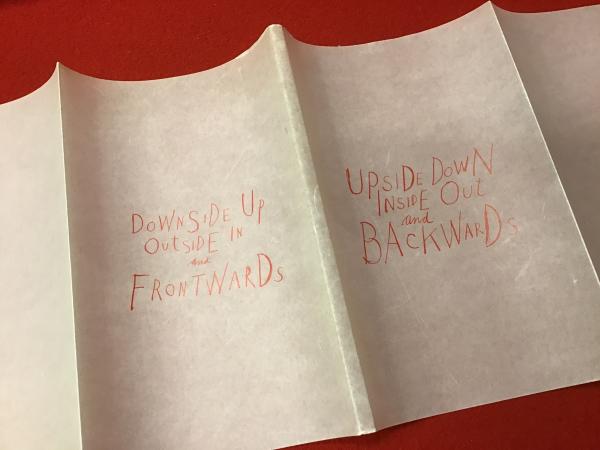 DOWNSIDE UP
OUTSIDE IN
and
FRONTWARDS
UPSIDE DOWN
INSIDE OUT
and
BACKWARDS